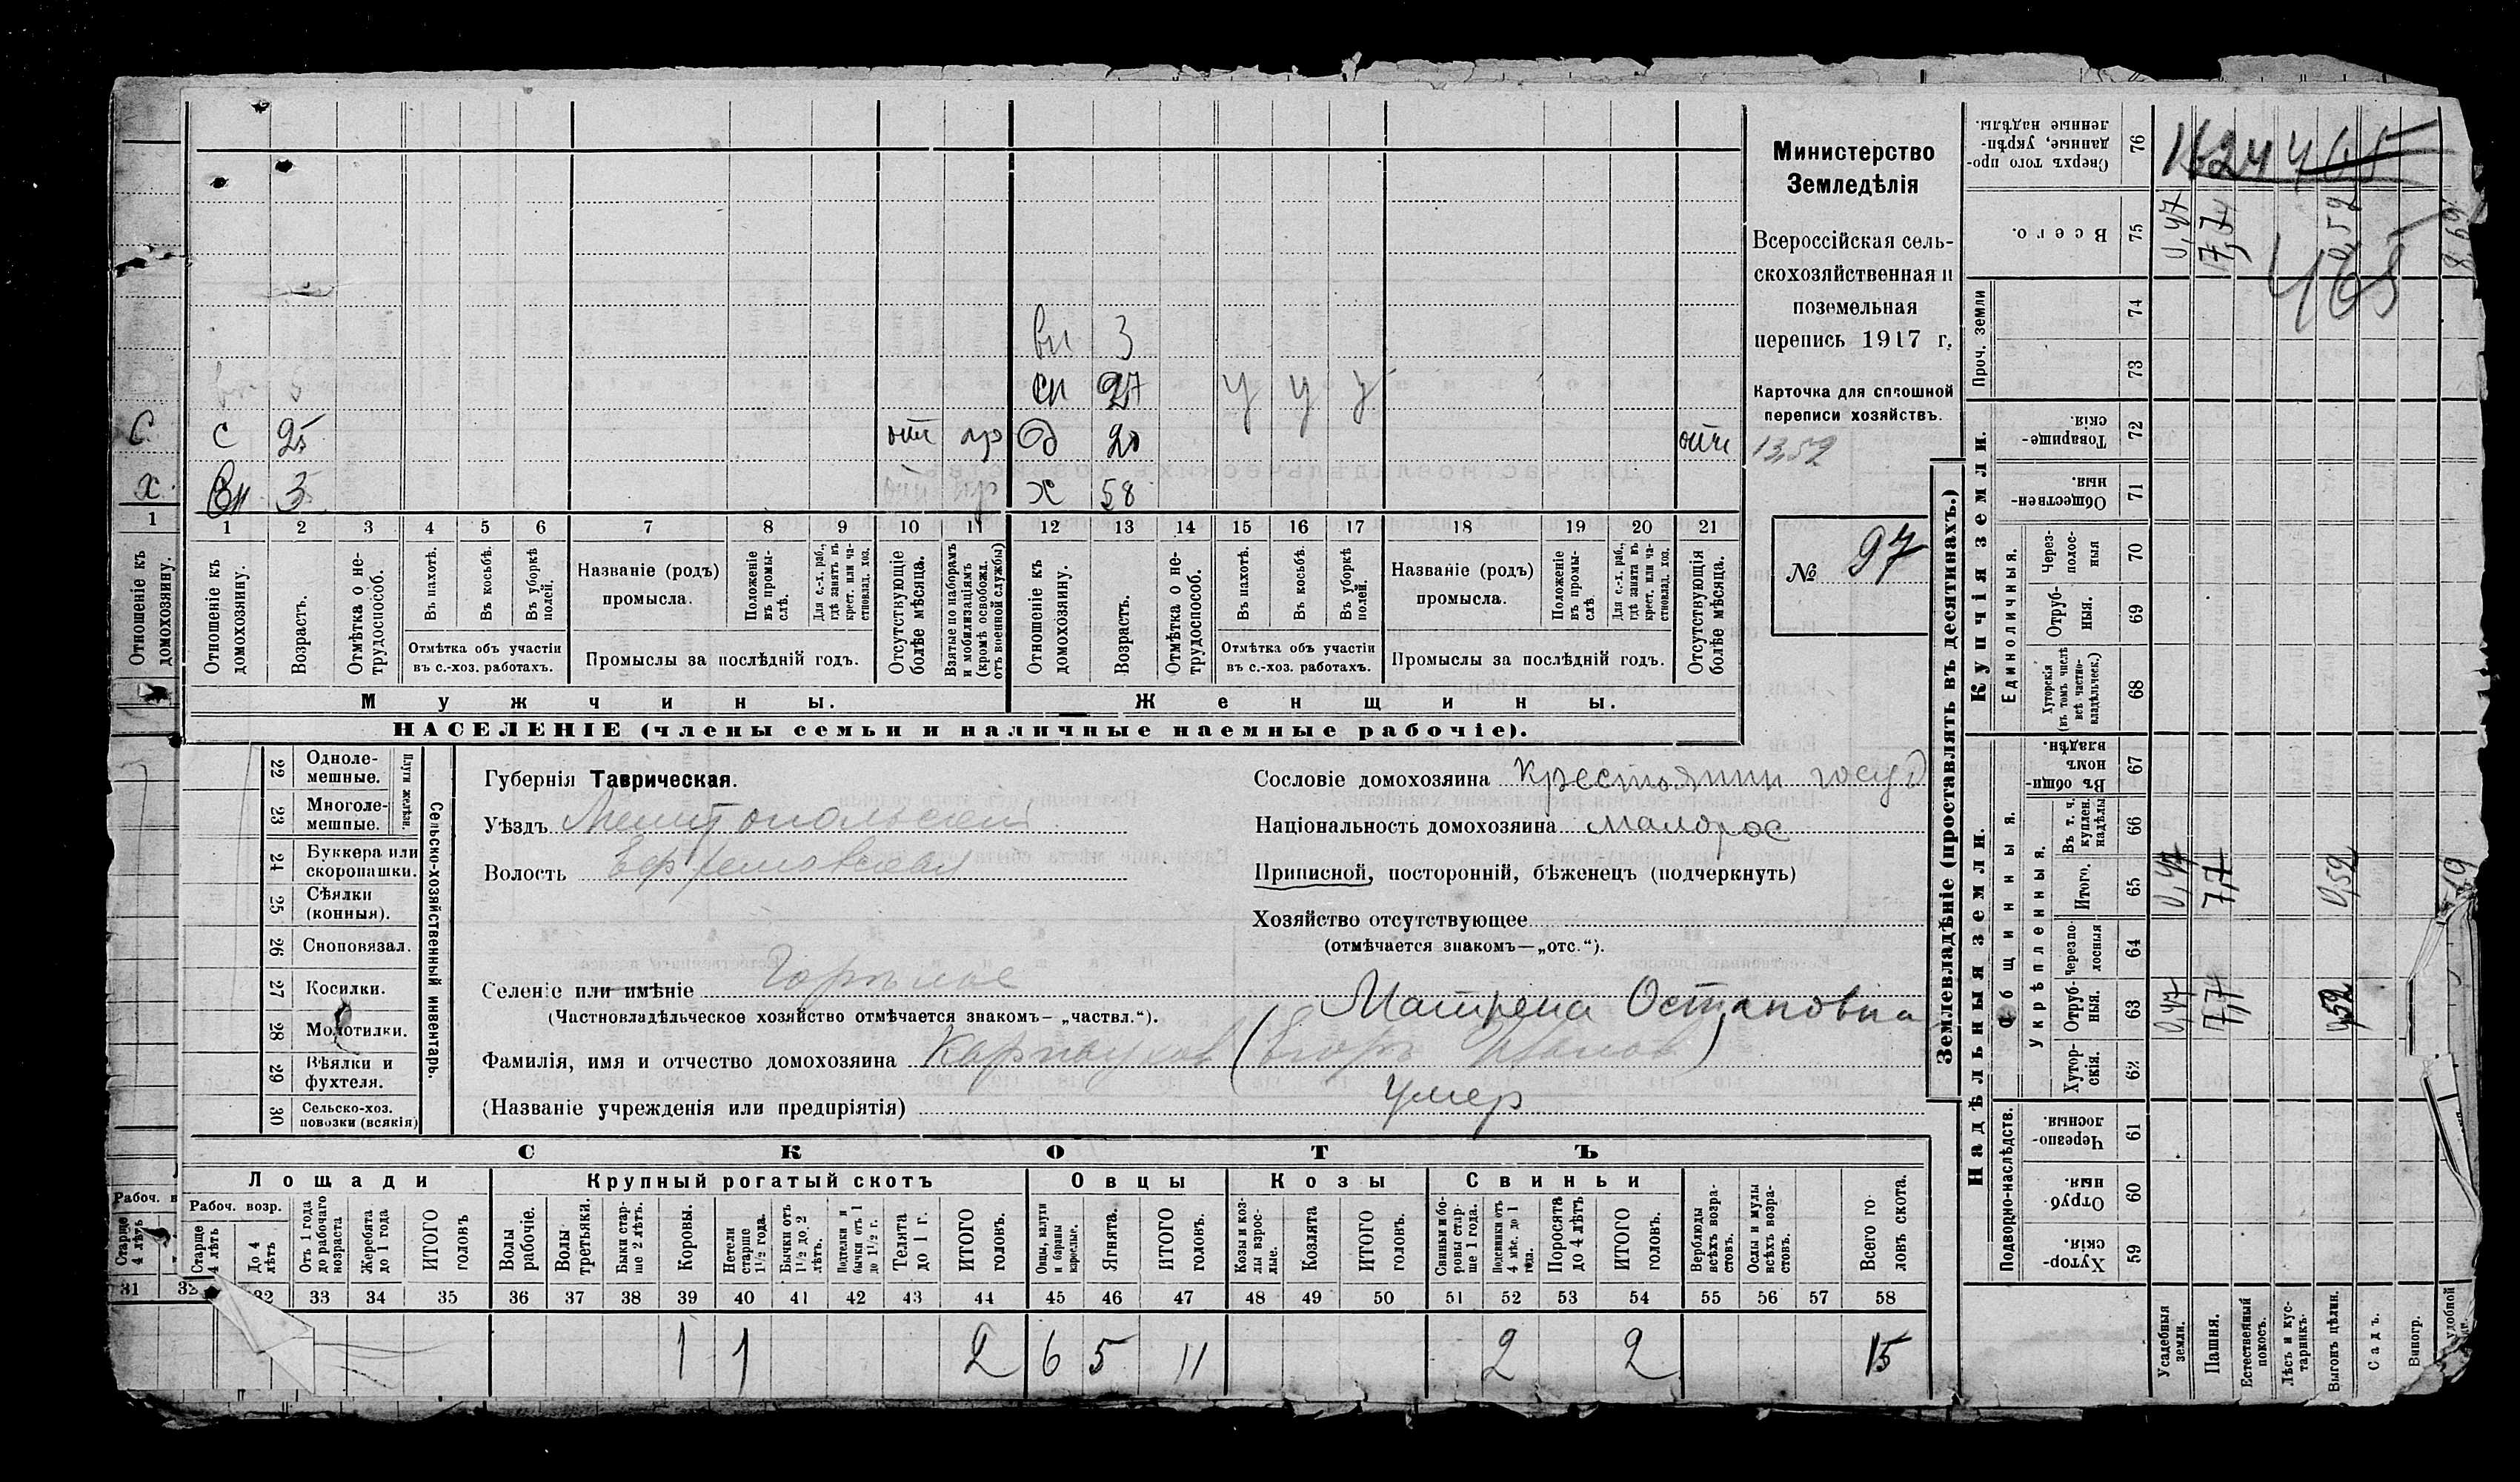 вн 3
сн 27 у у у
с 25 отс пр д 20 отс
вн 3 х 58
С
х
1 2 3 4 5 6 7 8 9 10 11 12 13 14 15 16 17 18 19 20 21
Отношеніе къ домохозяину.
Отношеніе къ домохозяину.
Возрастъ.
Отмѣтка о не-трудоспособ.
Въ пахотѣ.
Въ косьбѣ.
Въ уборкѣ полей.
Отмѣтка объ участіи
въ с.-хоз. работахъ.
Названіе (родъ)
промысла.
Положеніе въ промы-слѣ.
Для с.-х. раб., гдѣ занятъ въ крест. или ча-стновлад. хоз.
Промыслы за послѣдній годъ.
Отсутствующіе болѣе мѣсяца.
Взятые по наборамъ и мобилизаціямъ (кромѣ освобожд. отъ военной службы)
Отношеніе къ домохозяину.
Возрастъ.
Отмѣтка о не-трудоспособ.
Въ пахотѣ.
Въ косьбѣ.
Въ уборкѣ полей.
Отмѣтка объ участіи
въ с.-хоз. работахъ.
Названіе (родъ)
промысла.
Положеніе въ промы-слѣ.
Для с.-х. раб., гдѣ занята въ крест. или ча-стновлад. хоз.
Промыслы за послѣдній годъ.
Отсутствующія болѣе мѣсяца.
Мужчины. Женщины.
НАСЕЛЕНІЕ (члены семьи и наличные наемные рабочіе).
Министерство
Земледѣлія
Всероссійская сель-
скохозяйственная и
поземельная
перепись 1917 г.
Карточка для сплошной
переписи хозяйствъ.
13,52
№ 97
22 Одноле-мешные.
23 Многоле-мешные.
Плуги желѣзн.
24 Буккера или скоропашки.
25 Сѣялки (конныя).
26 Сноповязал.
27 Косилки.
28 Молотилки.
29 Вѣялки и фухтеля.
30 Сельско-хоз. повозки (всякія)
Сельско-хозяйственный инвентарь.
Губернія Таврическая.
Уѣздъ Мелитопольскій
Волость Ефремовская
Селеніе или имѣніе Горѣлое
(Частновладѣльческое хозяйство отмѣчается знакомъ— „частвл.“).
Матрена Остаповна
Фамилія, имя и отчество домохозяина Карпиуков (Егоръ Иванов)
умер
(Названіе учрежденія или предпріятія)
Сословіе домохозяина Крестьянин госуд
Національность домохозяина малорос
Приписной, посторонній, бѣженецъ (подчеркнуть)
Хозяйство отсутствующее
(отмѣчается знакомъ—„отс.“).
СКОТЪ
Лошади Крупный рогатый скотъ Овцы Козы Свиньи
Рабоч. возр.
Старше 4 лѣтъ
До 4 лѣтъ
Отъ 1 года до рабочаго возраста
Жеребята до 1 года
ИТОГО головъ
Волы рабочіе.
Волы третьяки.
Быки стар-ше 2 лѣтъ.
Коровы.
Нетели старше 1½ года.
Бычки отъ 1½ до 2 лѣтъ.
Подтелки и бычки отъ 1 до 1½ г.
Телята до 1 г.
ИТОГО головъ.
Овцы, валухи и бараны взрослые.
Ягнята.
ИТОГО головъ.
Козы и коз-лы взрос-лые.
Козлята
ИТОГО головъ.
Свиньи и бо-ровы стар-ше 1 года.
Подсвинки отъ 4 мѣс. до 1 года.
Поросята до 4 лѣтъ
ИТОГО головъ.
Верблюды всѣхъ возра-стовъ.
Ослы и мулы всѣхъ возра-стовъ.
Всего го-ловъ скота.
31 32 33 34 35 36 37 38 39 40 41 42 43 44 45 46 47 48 49 50 51 52 53 54 55 56 57 58
1 1 2 6 5 11 2 2 15
Землевладѣніе (проставлять въ десятинахъ.)
Надѣльныя земли. Купчія земли. Проч. земли
Подворно-наслѣдств.
Общинныя.
Укрѣпленныя.
Единоличныя.
76 Сверхъ того про-данные, укрѣп-ленные надѣлы.
75 Всего. 0,47 7,7 0,52 8,69
74
73
72 Товарище-скія
71 Обществен-ныя.
70 Через-полос-ныя
69 Отруб-ныя.
68 Хуторскія (въ томъ числѣ всѣ частно-владѣльческ.)
67 Въ общи-номъ владѣн.
66 Въ т. ч. куплен. надѣлы
65 Итого. 0,47 7,7 0,52
64 Черезпо-лосныя
63 Отруб-ныя. 0,47 7,7 0,52
62 Хутор-скія.
61 Черезпо-лосныя.
60 Отруб-ныя.
59 Хутор-скія.
465
Усадебныя земли.
Пашня.
Естественный покосъ.
Лѣсъ и кус-тарникъ.
Выгонъ цѣлин.
Садъ.
Виногр.